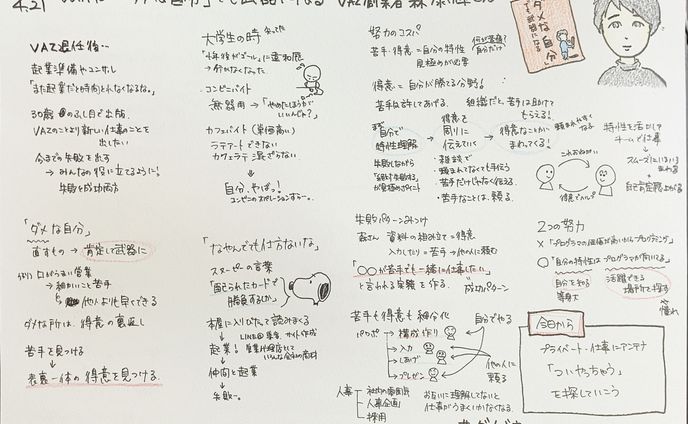 4.21
「ダメな自分」でも武器になる VAZ創業者 森泰輝さん
VAZ退任後…
起業準備やコンサル
「また起業だと時間とれなくなるな。」
30歳のふし目で出版。
VAZのことより新しい仕事のことを
出したい
今までの失敗を出す
→みんなの役に立てるように!
失敗を成功両方
「ダメな自分」
直すもの → 肯定して武器に
口がうまい営業
→細かいこと苦手
→他人よりも早くできる
ダメな所は、得意の裏返し
苦手を見つける
↓
表裏一体の得意を見つける
大学生の時
「4年後がゴール」に違和感
→分かなくなった
・コンビニバイト
無器用→「やめたほうがいいんじゃ?」
・カフェバイト(単価高い)
ラテアートできない
カフェラテ混ざらない
↓
自分、そばっ!
コンビニのオペレーションすらー。
「なやんでも仕方ないな」
スヌーピーの言葉
「配られたカードで
勝負するしか」
本屋に入りびたって読みまくる
↓
起業!
↓
仲間と起業
↓
失敗…。
努力のコスパ
苦手・得意=自分の特性
見極めが必要
得意=自分が勝てる分野!
苦手は許してあげる。
組織だと、苦手は助けて
もらえる!
まず
自分で
特性理解
→
得意を
周りに
伝えていく
→
得意なことがい
まれてくる!
失敗しながら
が見極めポイント
・雑談で
・頼まれてなくても手伝う
・苦手だけじゃなく伝える
・苦手なことは、頼る
特性を活かして
チームで仕事
↓
これおねがい
得意でヘルプ
スムーズに
+
自己肯定感上がる
失敗パターンみつけ
森さん 資料の組み立て=得意
入力したり=苦手→他人に頼む
「○○が苦手でも一緒に仕事したい」
と言われる実績を作る。
成功パターン
苦手も得意も細分化
パワポ → 構成作り
→入力
→しあげ
→プレゼン
自分でやる
他の人に
頼る
人事
社内の雰囲気
人事企画
採用
お互いに理解してないと
仕事がうまくいかなくなる。
2つの努力
×「プログラマの価値が高いからプログラミング」
○「自分の特性はプログラマが向いてる」
自分を知る
等身大
活躍できる
場所で探す
憧れ
今日から
プライベート・仕事にアンテナ
「ついやっちゃう」
を探していこう
「ダメな自分」
でも武器になる